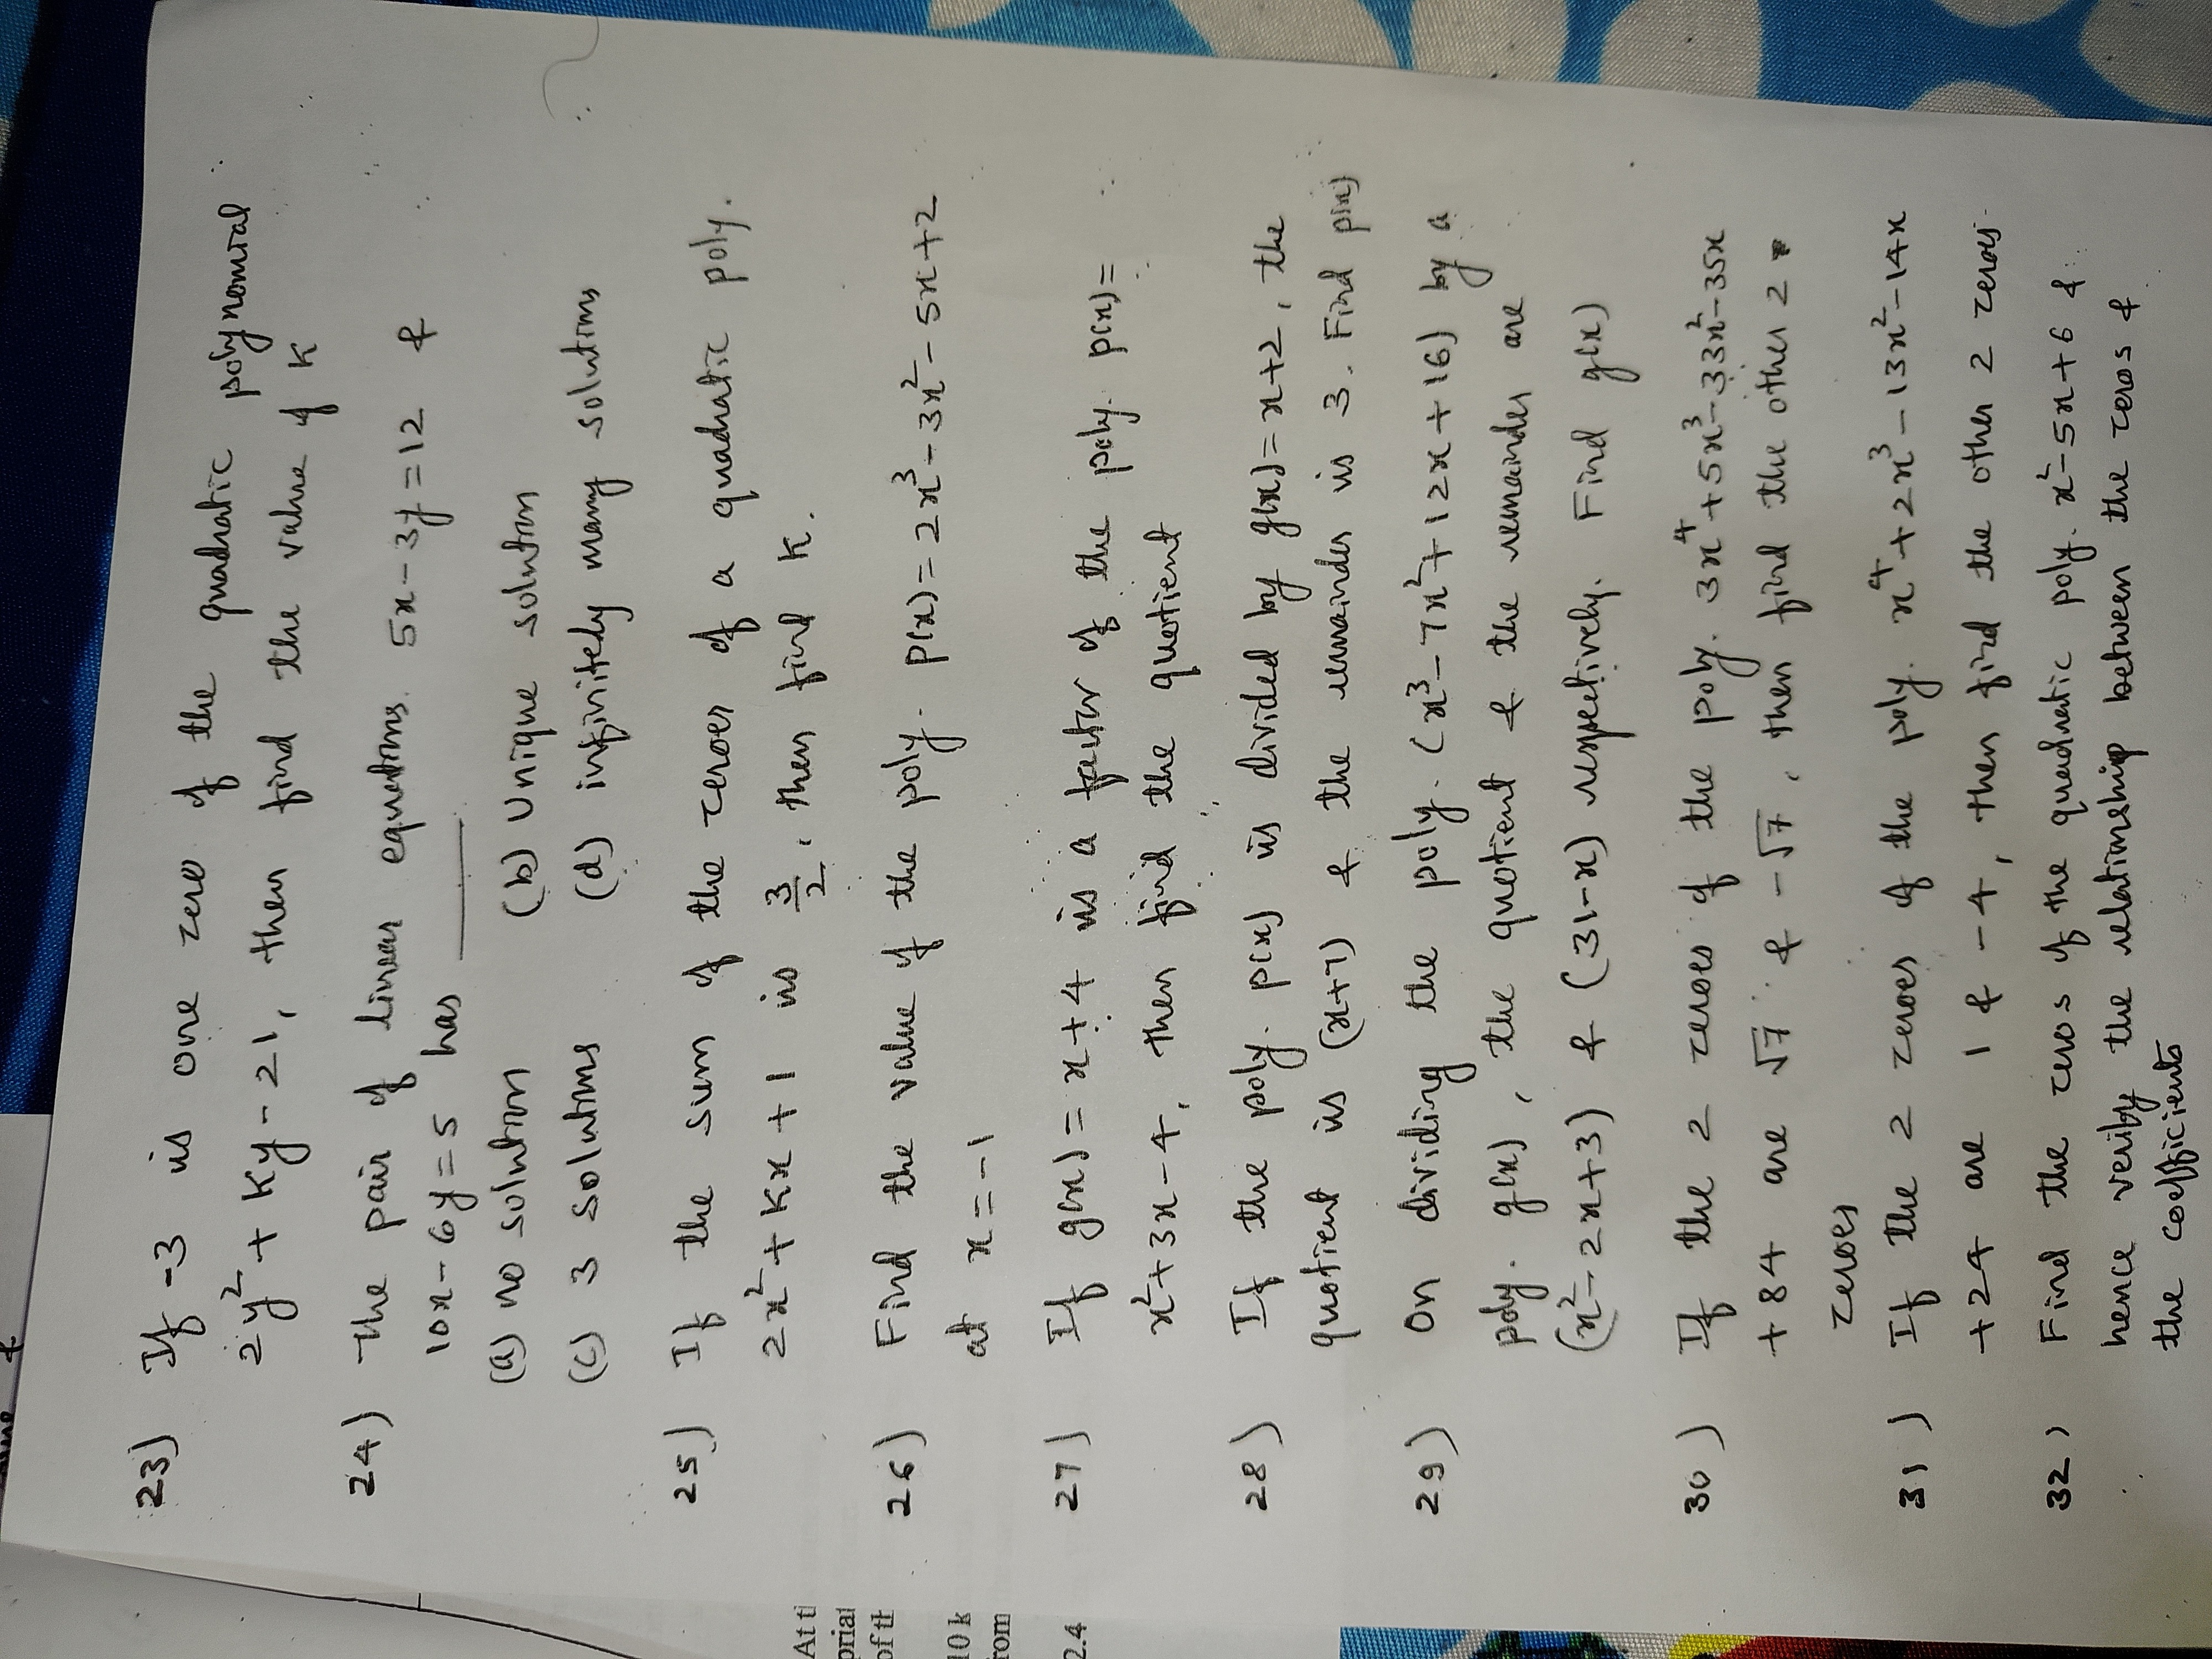 23) If -3 is one zero of the quadratic polynomial
2y² + Ky - 21, then find the value of K
24) The pair of linear equations 5x - 3y = 12 &
10x - 6y = 5 has ______
(a) no solution (b) Unique solution
(c) 3 solutions (d) infinitely many solutions
25) If the sum of the zeroes of a quadratic poly.
2x² + Kx + 1 is 3/2, then find K.
26) Find the value of the poly. p(x) = 2x³ - 3x² - 5x + 2
at x = -1
27) If g(x) = x + 4 is a factor of the poly. p(x) =
x² + 3x - 4, then find the quotient
28) If the poly. p(x) is divided by g(x) = x + 2, the
quotient is (x+7) & the remainder is 3. Find p(x)
29) On dividing the poly. (x³ - 7x² + 12x + 16) by a
poly. g(x), the quotient & the remainder are
(x² - 2x + 3) & (31 - x) respectively. Find g(x)
30) If the 2 zeroes of the poly. 3x⁴ + 5x³ - 33x² - 35x
+ 84 are √7 & -√7, then find the other 2
zeroes
31) If the 2 zeroes of the poly. x⁴ + 2x³ - 13x² - 14x
+ 24 are 1 & -4, then find the other 2 zeroes.
32) Find the zeros of the quadratic poly. x² - 5x + 6 &
hence verify the relationship between the zeros &
the coefficients
At t
prial
of th
10 k
rom
2.4